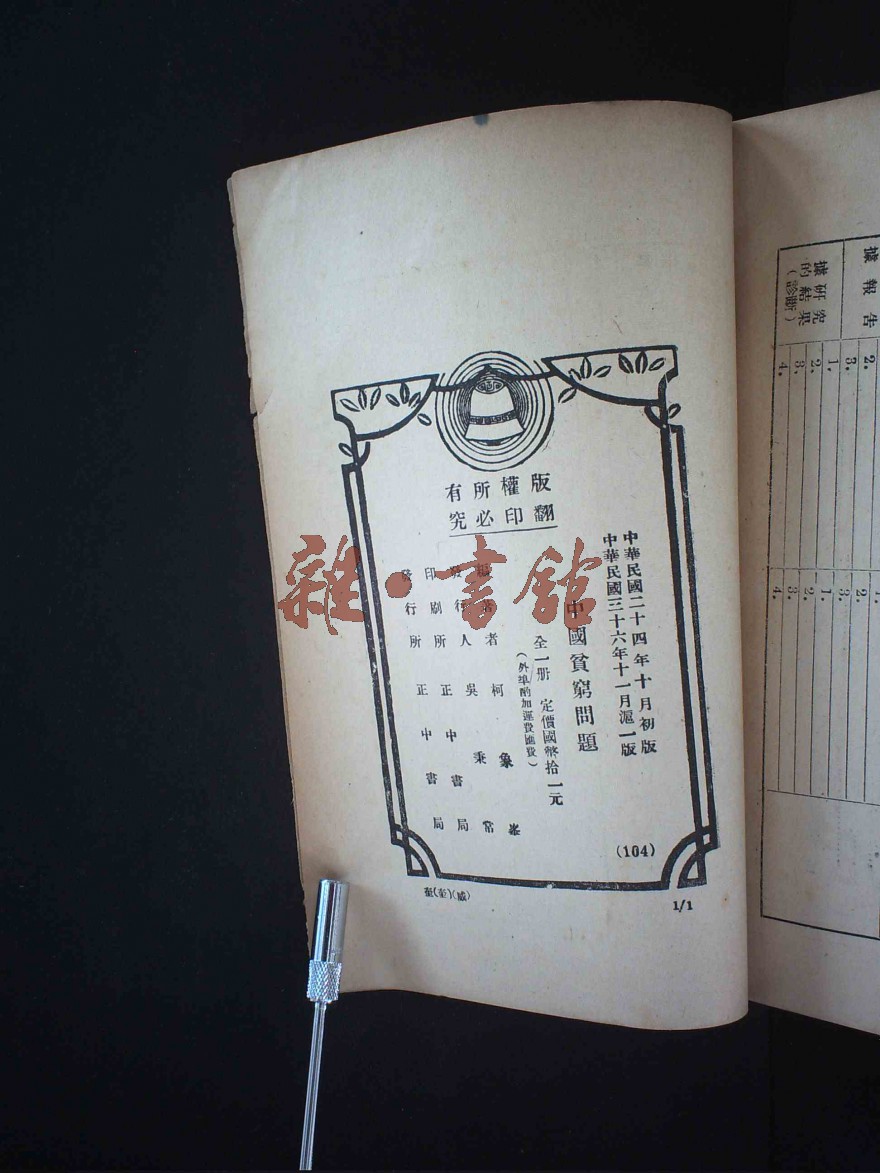 版權所有
翻印必究
中華民國二十四年十月初版
中華民國三十六年十一月滬一版
中國貧窮問題
全一册 定價國幣拾一元
(外埠酌加運費匯費)
編著者 柯象峯
發行人 吳秉常
印刷所 正中書局
發行所 正中書局
(104)
1/1
雜·書館
據報告
據研究的結果(診斷)
2.
3.
1.
2.
3.
4.
2.
3.
1.
2.
3.
4.